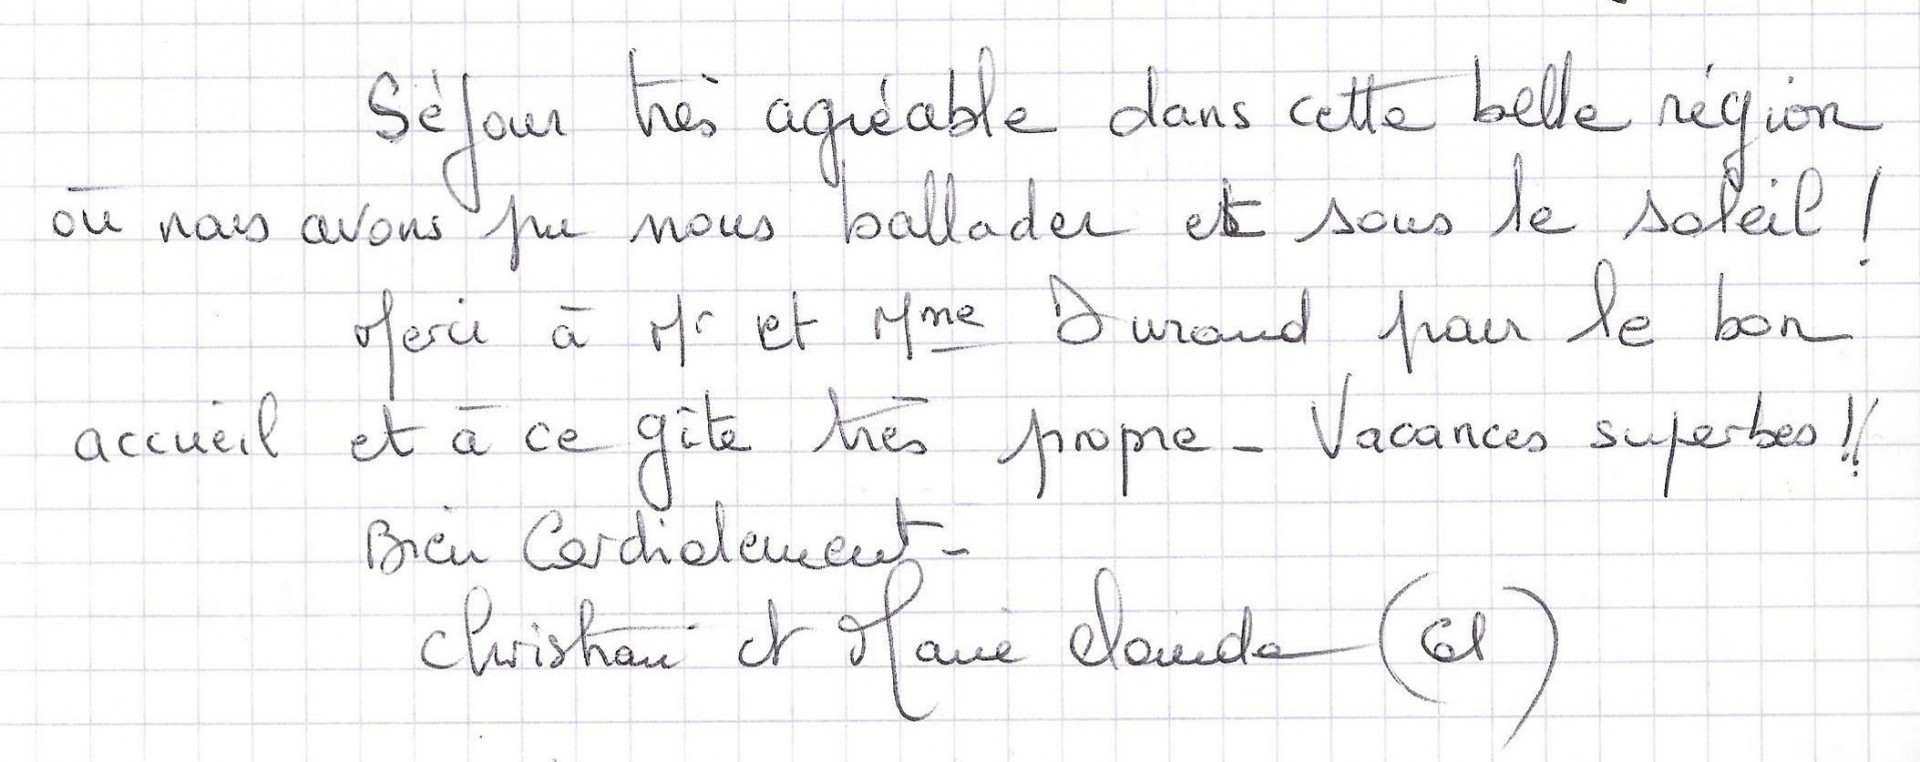 Séjour très agréable dans cette belle région
où nous avons pu nous ballader et sous le soleil !
Merci à Mr et Mme Durand pour le bon
accueil et à ce gîte très propre - Vacances superbes !!
Bien Cordialement -
Christian et Marie Claude (61)